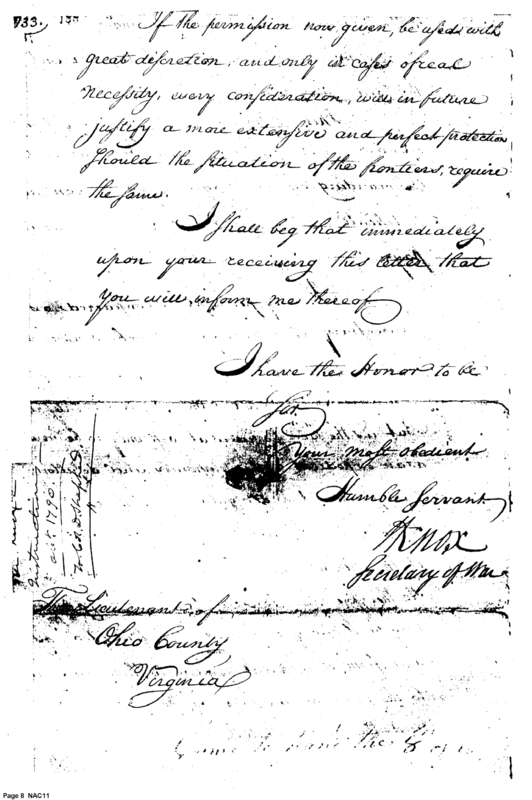 733.
If the permission now given, be used with
great discretion, and only in cases of real
necessity, every consideration, will in future
justify a more extensive and perfect protection
should the situation of the frontiers, require
the same.
I shall beg that immediately
upon your receiving this letter that
you will inform me thereof
I have the Honor to be
Sir
Your most obedient
Humble Servant
H Knox
Secretary of War
The Lieutenant of
Ohio County
Virginia
Came to hand the
Page 8 NAC11